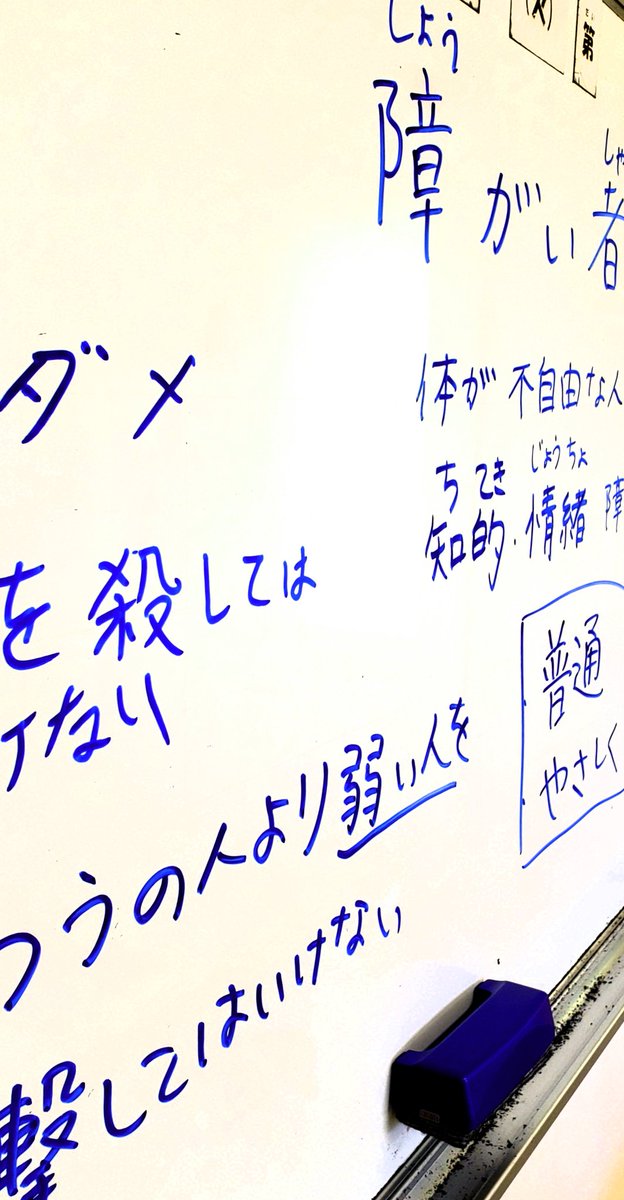 しょう
障がい者
しゃ
体が不自由な人
ちてき じょうちょ
知的・情緒 障
普通
やさしく
ダメ
を殺しては
けない
つうの人より弱い人を
撃してはいけない